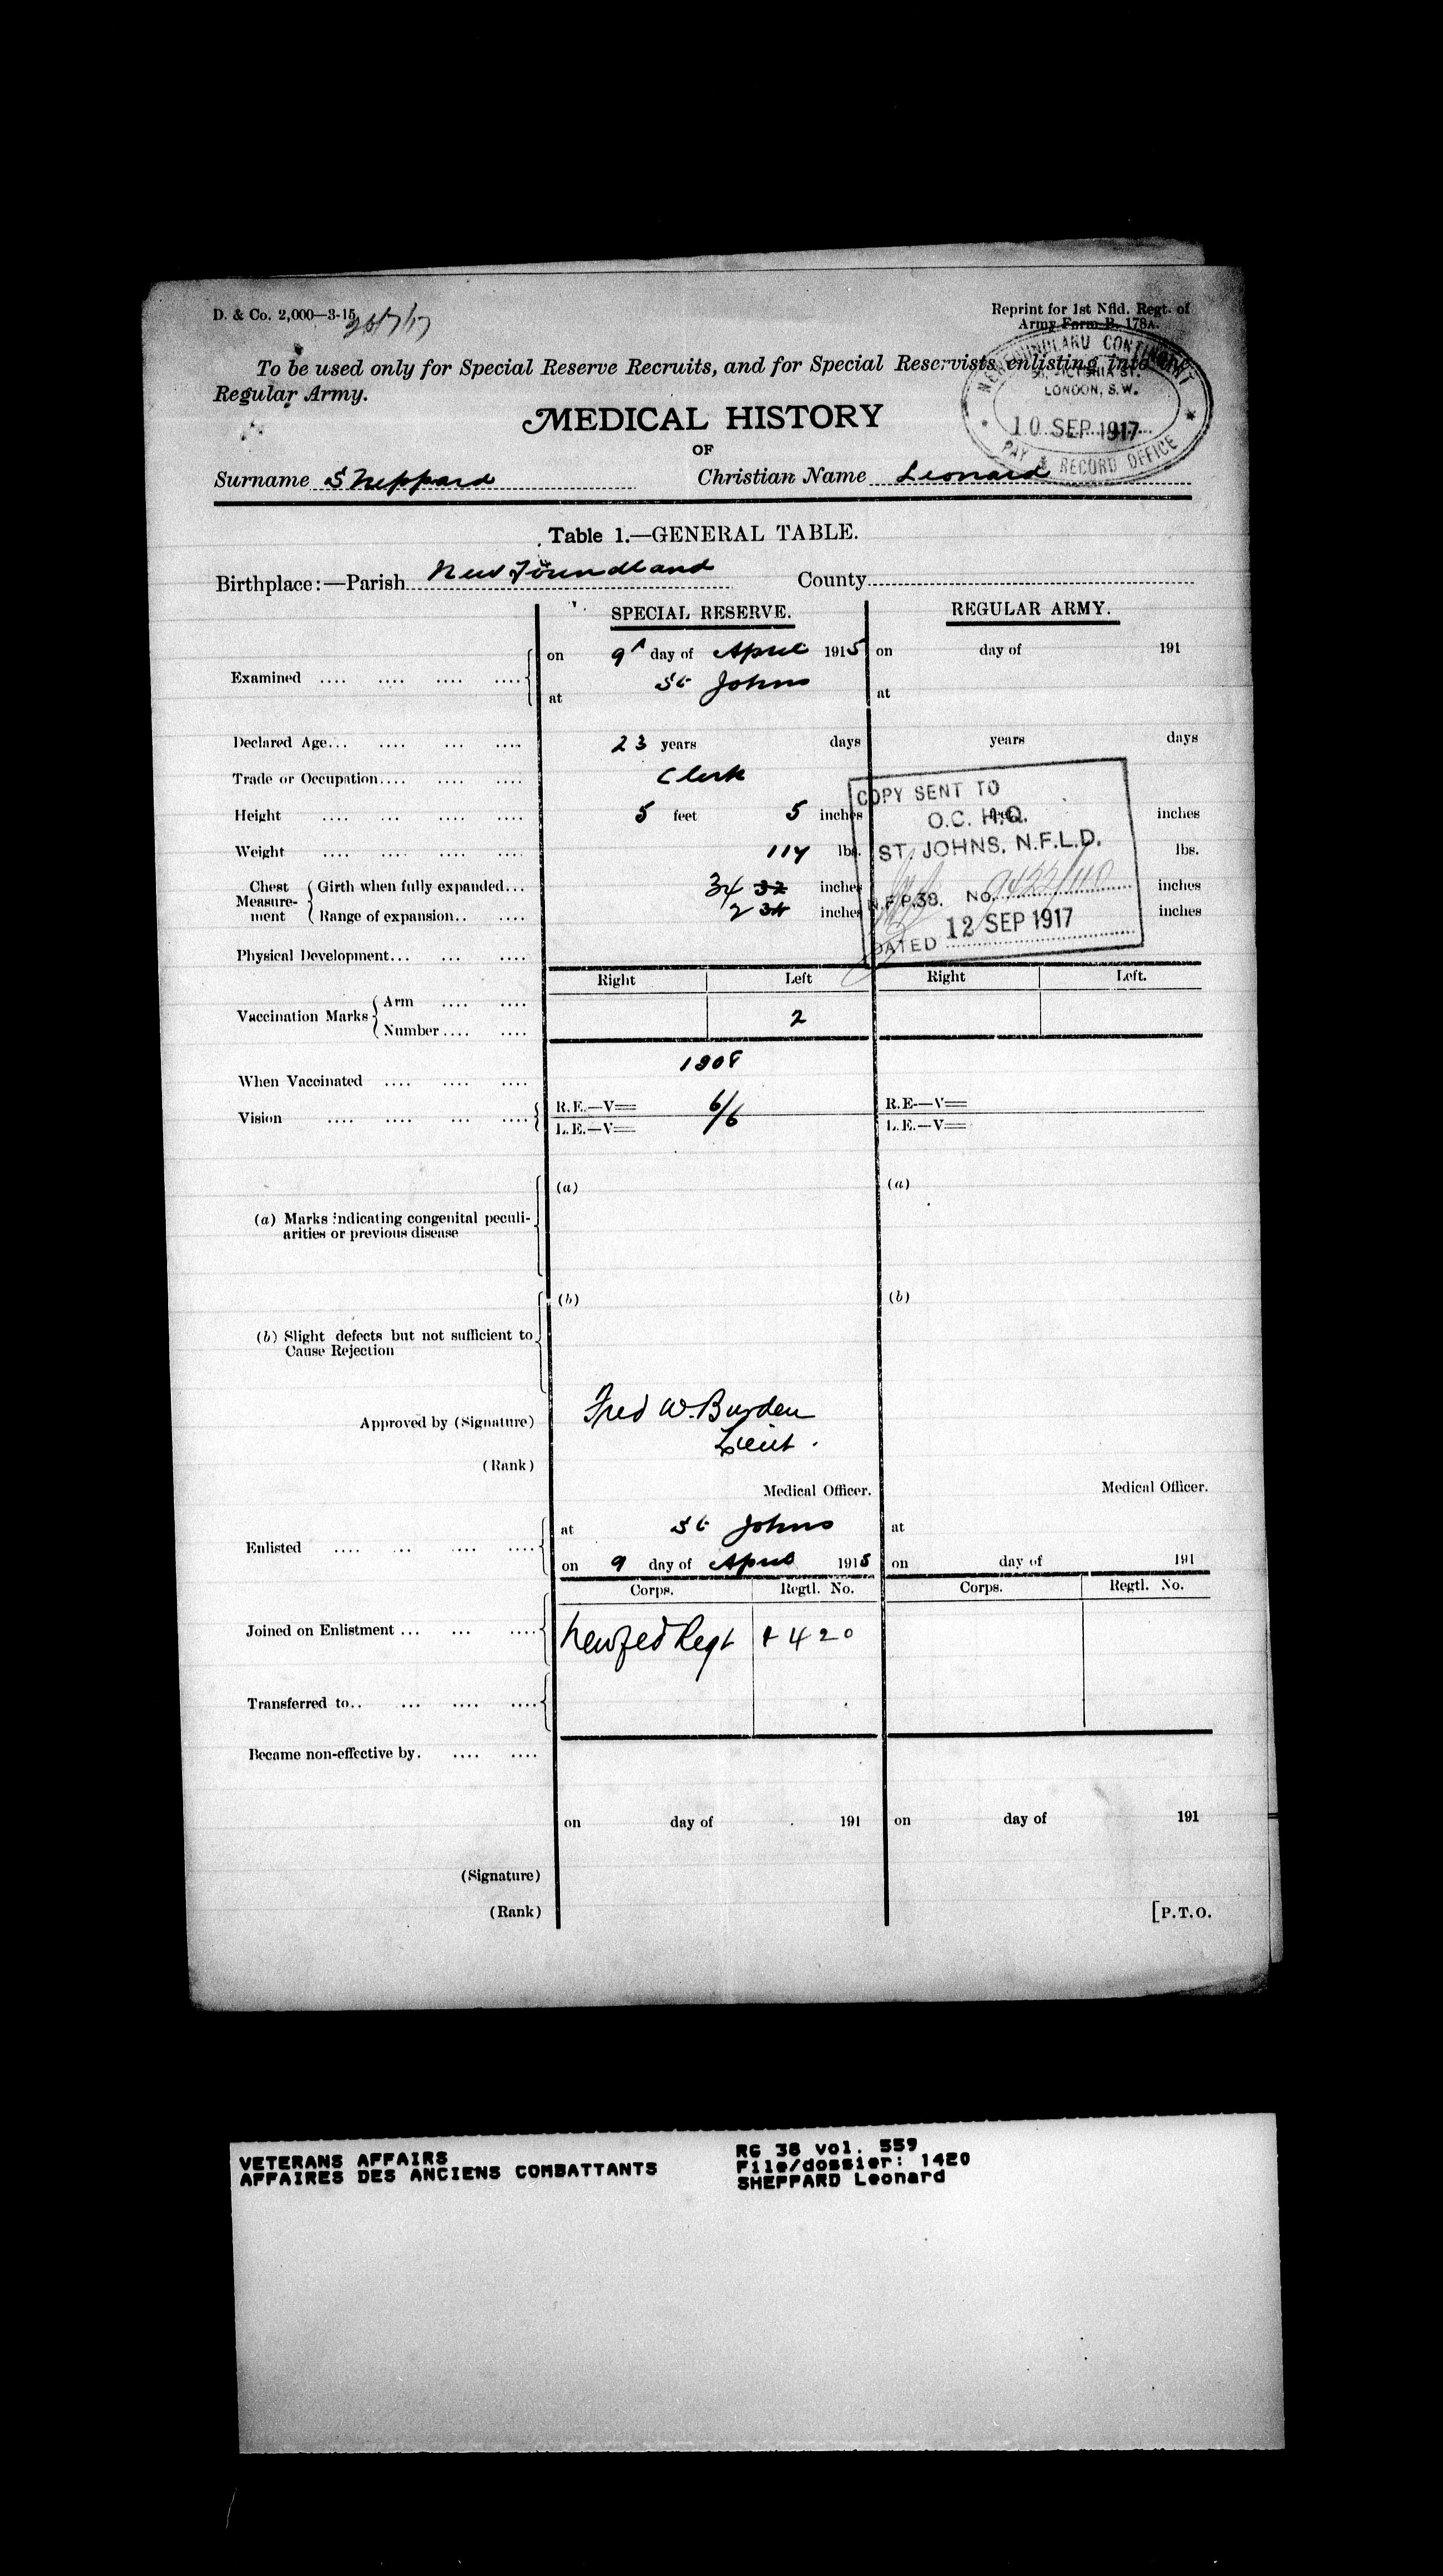 D. & Co. 2,000—3-15
Reprint for 1st Nfld. Regt. of
Army Form B. 178A.
To be used only for Special Reserve Recruits, and for Special Reservists enlisting into the
Regular Army.
NEWFOUNDLAND CONTINGENT
VICTORIA ST.
LONDON, S.W.
10 SEP 1917
PAY & RECORD OFFICE
MEDICAL HISTORY
OF
Surname Sheppard Christian Name Leonard
Table 1.—GENERAL TABLE.
Birthplace:—Parish Newfoundland County
SPECIAL RESERVE. REGULAR ARMY.
Examined .... .... .... .... on 9 day of April 1915 on day of 191
at St Johns at
Declared Age... .... ... .... 23 years days years days
Trade or Occupation.... .... .... Clerk
Height .... ... .... .... 5 feet 5 inches inches
Weight .... .... .... .... 117 lbs. lbs.
Chest Measurement Girth when fully expanded... 34 32 inches inches
Range of expansion.. .... 2 34 inches inches
COPY SENT TO
O.C. H.Q.
ST. JOHNS, N.F.L.D.
N.F.P.38. No.
DATED 12 SEP 1917
Physical Development... ... ....
Right Left Right Left.
Vaccination Marks Arm .... ....
Number.... .... 2
When Vaccinated .... .... .... 1908
Vision .... .... ... .... R.E.—V= 6/6 R.E—V=
L.E.—V= L.E.—V=
(a) (a)
(a) Marks indicating congenital peculi-
arities or previous disease
(b) (b)
(b) Slight defects but not sufficient to
Cause Rejection
Approved by (Signature) Fred W. Burden
Lieut.
(Rank)
Medical Officer. Medical Officer.
at St Johns at
Enlisted .... ... .... ....
on 9 day of April 1915 on day of 191
Corps. Regtl. No. Corps. Regtl. No.
Joined on Enlistment ... ... .... Newfed Regt 1420
Transferred to.. ... .... ....
Became non-effective by. .... ....
on day of 191 on day of 191
(Signature)
(Rank)
[P.T.O.
VETERANS AFFAIRS
AFFAIRES DES ANCIENS COMBATTANTS
RG 38 vol. 559
File/dossier: 1420
SHEPPARD Leonard